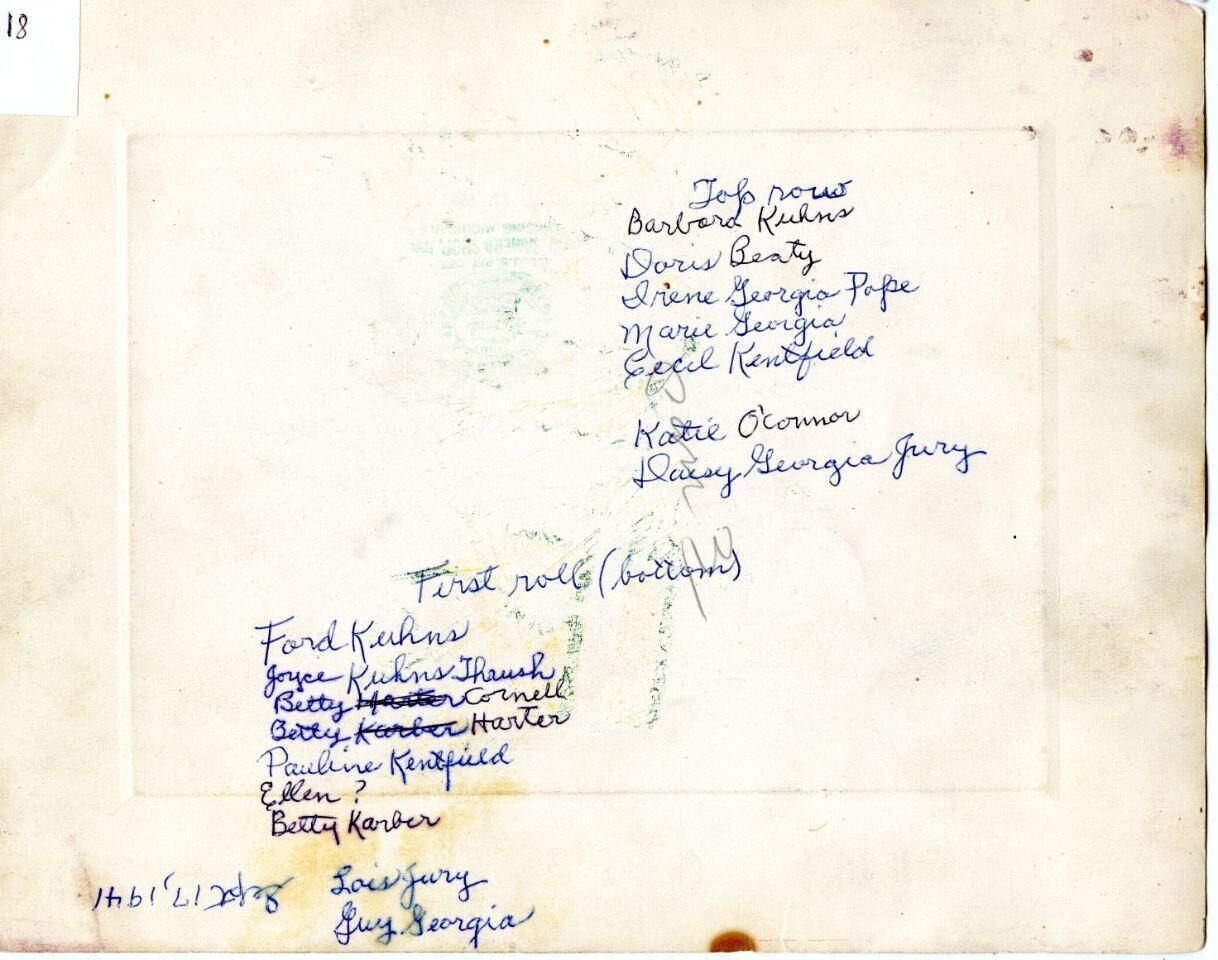 18
Top row
Barbara Kuhns
Doris Beaty
Irene Georgia Pope
Marie Georgia
Cecil Kentfield
Katie O'Connor
Daisy Georgia Jury
First roll (bottom)
Ford Kuhns
Joyce Kuhns Thrush
Betty Harter Cornell
Betty Karber Harter
Pauline Kentfield
Ellen ?
Betty Karber
Lois Jury
Guy Georgia
Sept 17, 1941